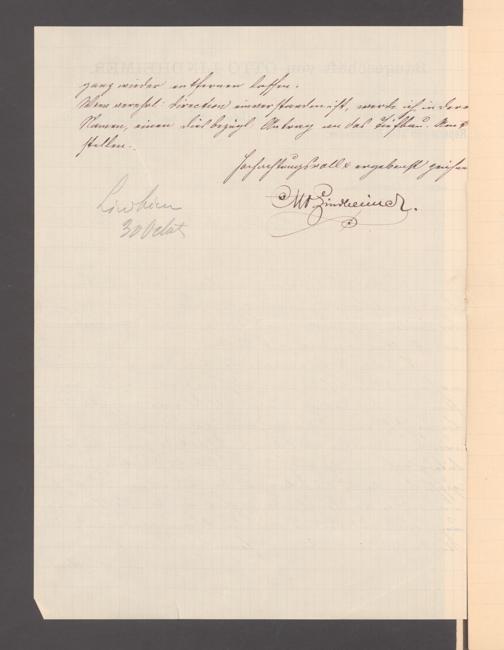 ganz wieder entfernen lassen.
Wenn verehrl. Direction einverstanden ist, werde ich in deren
Namen, einen diesbezügl. Antrag an das Tiefbau-Amt
stellen.
Hochachtungsvoll & ergebenst zeichnet
Otto Lindheimer.
30 Oct